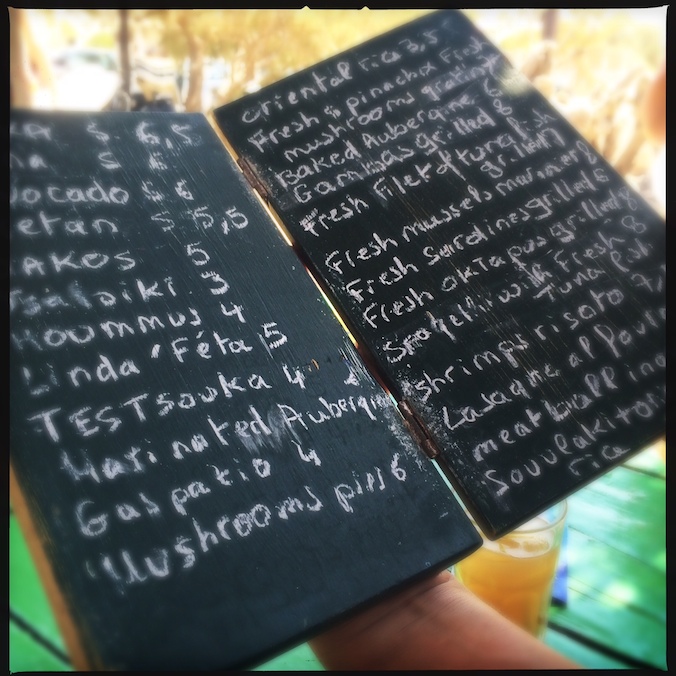 S 6,5
S 6
ocado S 6
etan S 5,5
AKOS 5
Tsatsiki 3
Hoummus 4
Linda, Féta 5
TESTsouka 4
Marinated Aubergine
Gaspatio 4
Mushrooms pill 6
oriental rice 3,5
Fresh Spinachix Fresh
mushrooms gratin
Baked Aubergine 6
Gambas grilled 8
Fresh Filet of tuna fish
grilled
Fresh mussels marinier 8
Fresh Sardines grilled 6
Fresh oktapus grilled 8
Spagetti with Fresh 8
Tuna fish
shrimps risoto 7,
Lasagne al
meat ball in
Souvlaki
rice